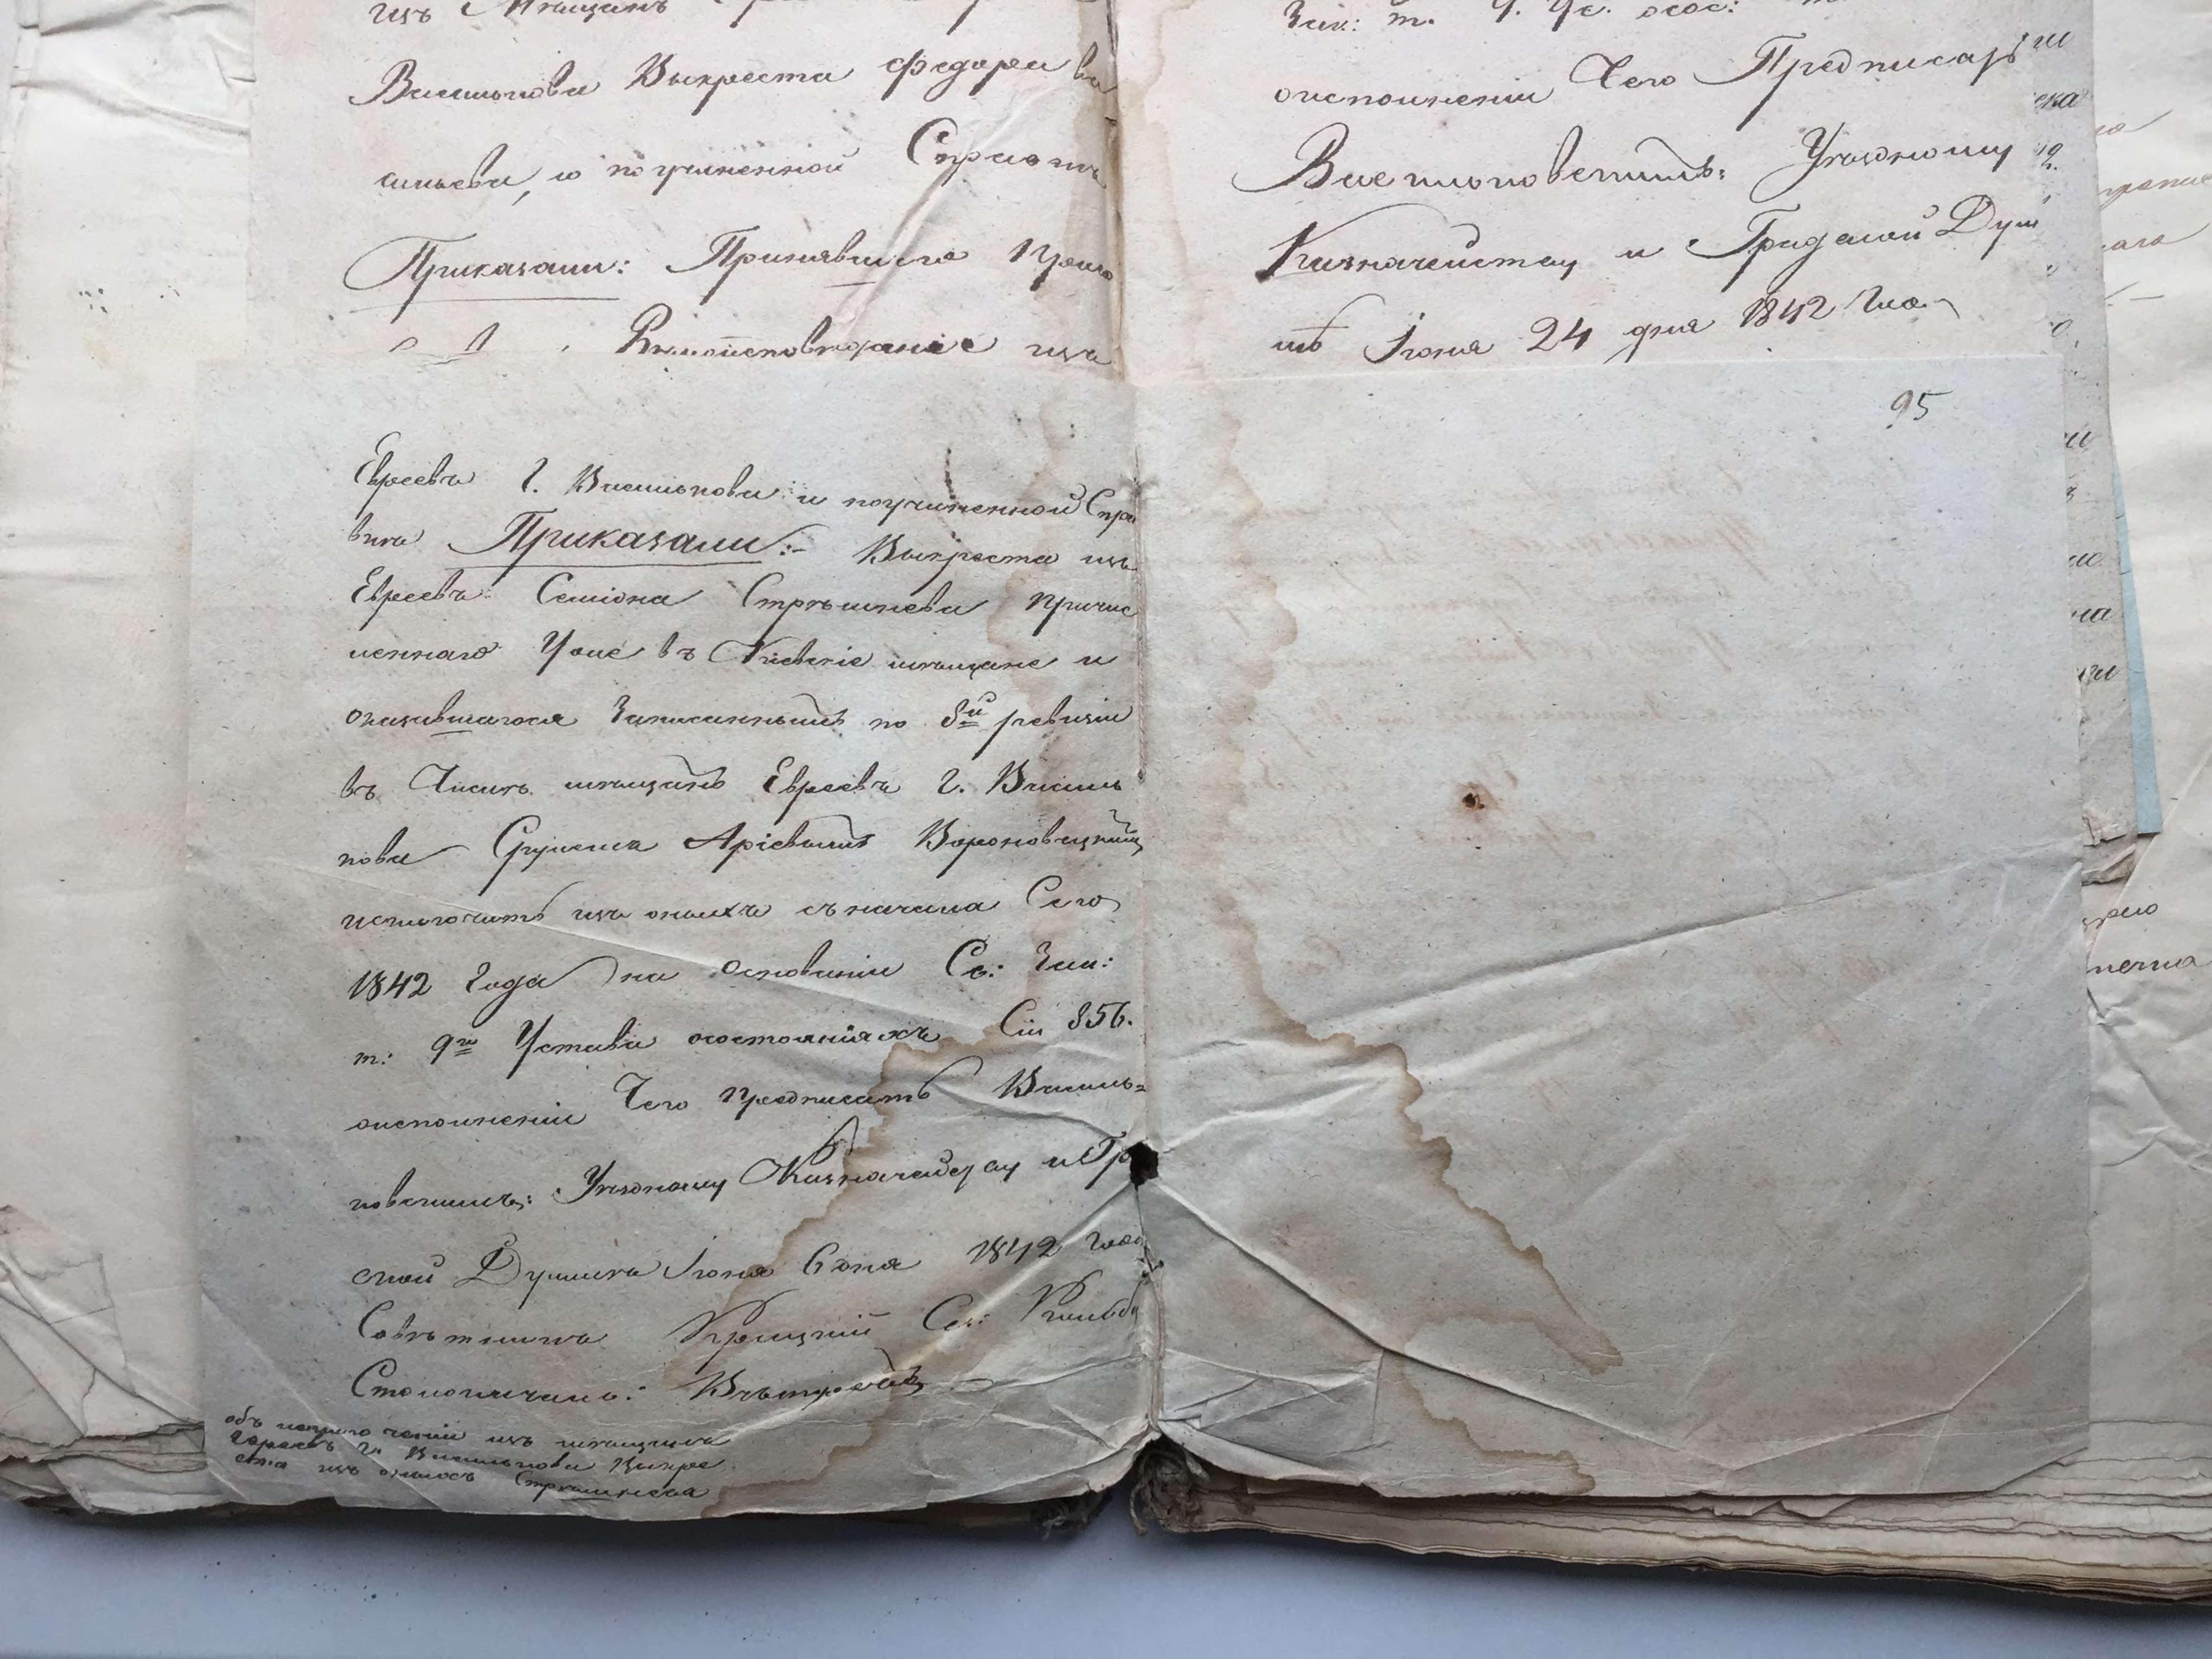 изъ Мещанъ
Василькова Выкреста Федора Ва
сильева, и по учиненной Справкѣ
Приказали: Принявшаго
Римскоисповеданіе изъ
Зак: т. 9. Ус. осос:
оисполненіи Чего Предписать
Васильковскимъ: Уѣздному
Казначейству и Градской Дум
мѣ Іюня 24 дня 1842 года
95
Евреевъ г. Василькова и поучиненной Спра
вки Приказали:- Выкреста изъ
Евреевъ Семіона Стрѣльнева Причис
леннаго Уже въ Кіевскіе мѣщане и
оказавшагося Записаннымъ по 8й ревизіи
въ Числѣ мѣщанъ Евреевъ г. Василь
кова Сруlemъ Аріевымъ Вороновецкимъ
исключить изъ оныхъ съ начала Сего
1842 года на Основаніи Св: Зак:
т: 9го Устава осостояніяхъ Ст 856.
оисполненіи Чего предписать Василь-
ковскимъ: Уѣздному Казначейству и Гр
ской Думамъ Іюня 6 дня 1842 года
Совѣтникъ
Столоначаль:
объ исключеніи изъ мѣщанъ
Евреевъ г. Василькова Выкре
ста изъ оныхъ Стрѣльнева